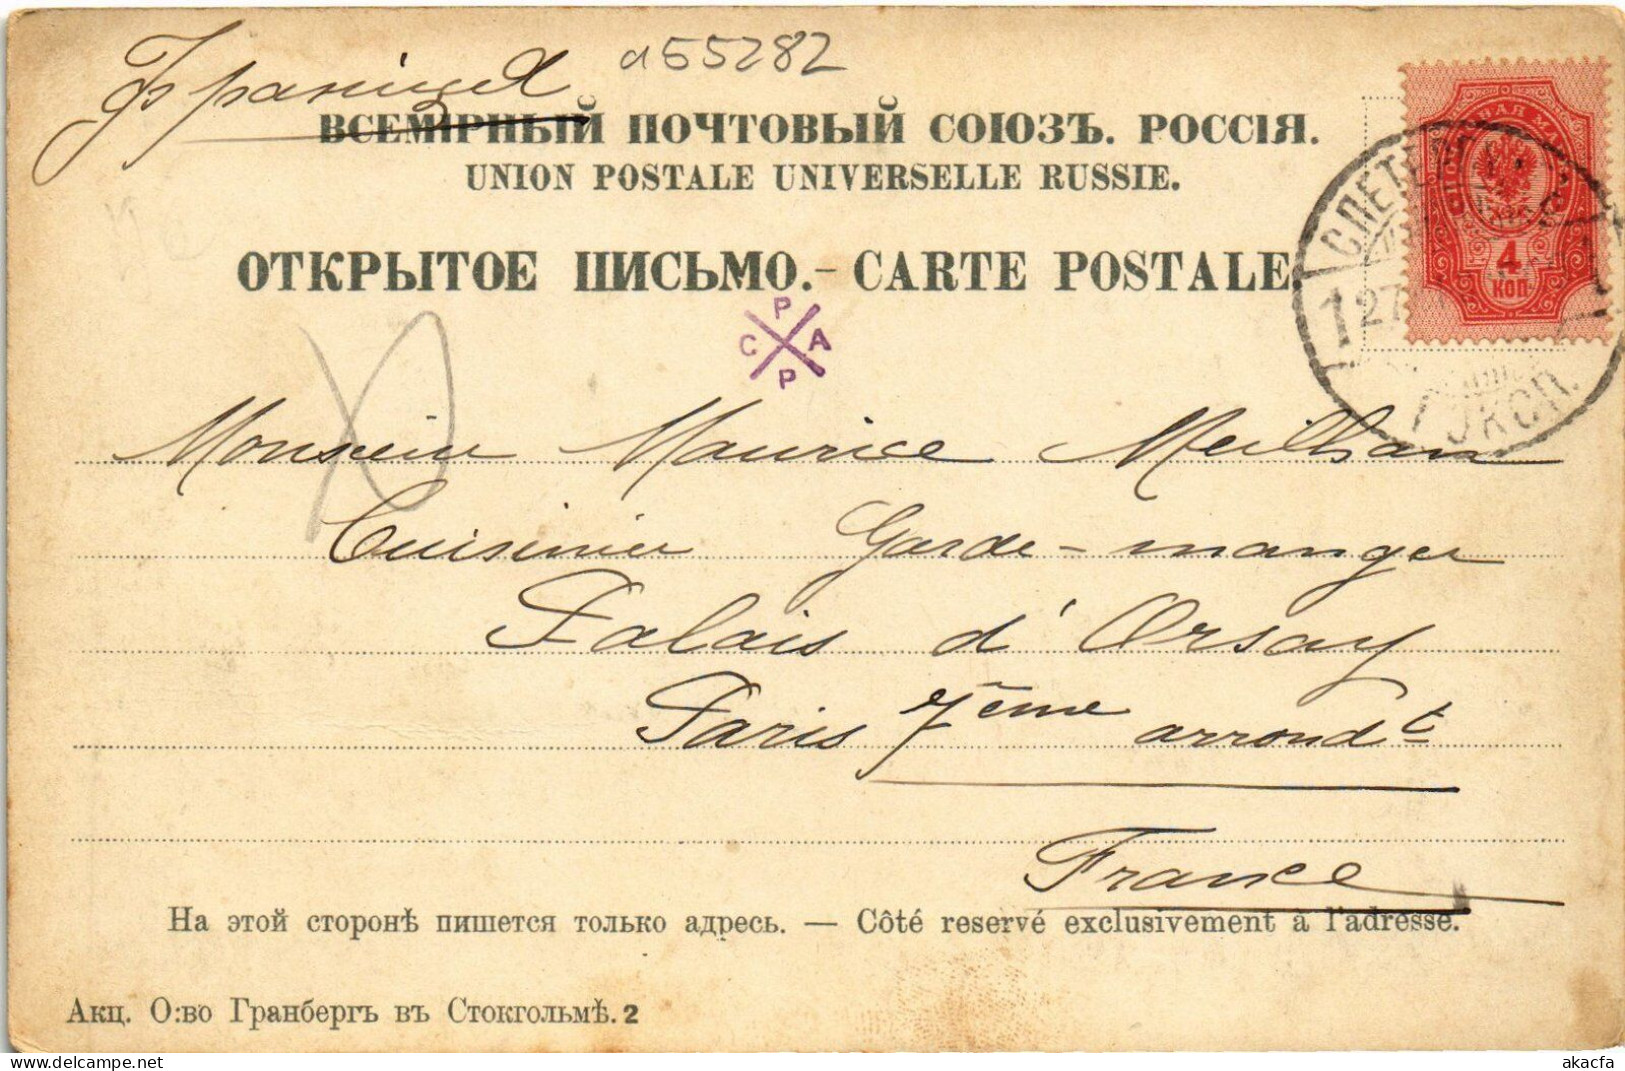 Франція
a55282
ВСЕМІРНЫЙ ПОЧТОВЫЙ СОЮЗЪ. РОССІЯ.
UNION POSTALE UNIVERSELLE RUSSIE.
ОТКРЫТОЕ ПИСЬМО. – CARTE POSTALE
P
C A
P
4
КОП.
С.ПЕТЕРБ
1 27
Monsieur Maurice Meilhan
Cuisinier Garde-manger
Palais d'Orsay
Paris 7ème arrondt
France
На этой сторонѣ пишется только адресь. — Côté reservé exclusivement à l'adresse.
Акц. О:во Гранбергъ въ Стокгольмѣ. 2
akacfa